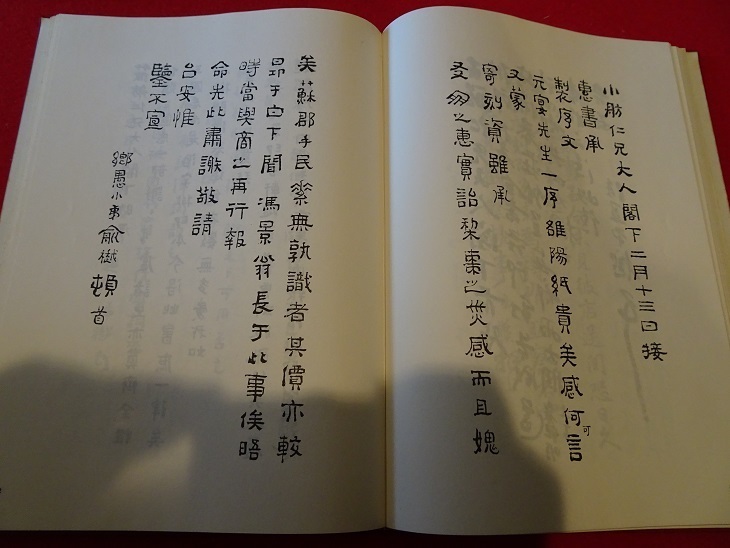 小舫仁兄大人閣下二月十三日接
惠書承
製序文
元宴先生一序雒陽紙貴矣感何可言
又蒙
寄刻資雖承
之惠實詒棃棗之烖感而且媿
矣蘇郡手民素無孰識者其價亦較
昂于白下聞馮景翁長于此事俟晤
時當與商之再行報
命先此肅謝敬請
台安惟
鑒不宣
鄉愚小弟俞樾頓首